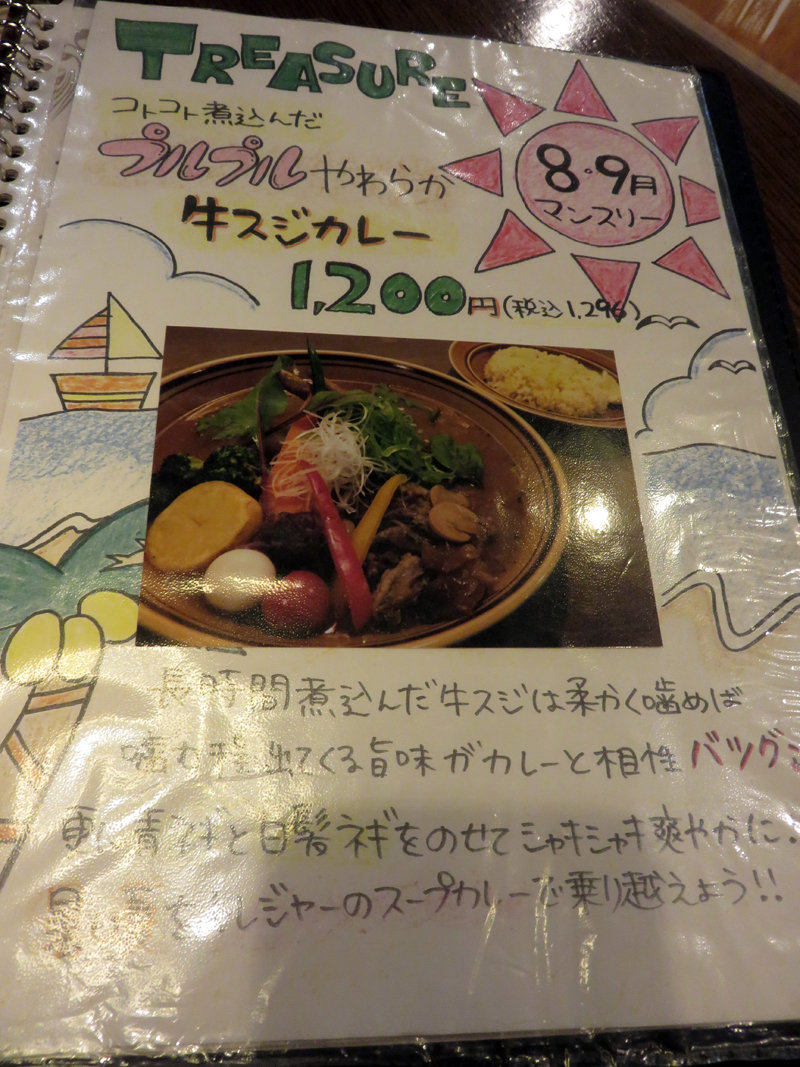 TREASURE
コトコト煮込んだ
プルプルやわらか
牛スジカレー
8・9月
マンスリー
1,200円(税込1,296)
長時間煮込んだ牛スジは柔かく噛めば
噛む程出てくる旨味がカレーと相性バツグン
更に青ネギと白髪ネギをのせてシャキシャキ爽やかに.
暑い夏をトレジャーのスープカレーで乗り越えよう!!